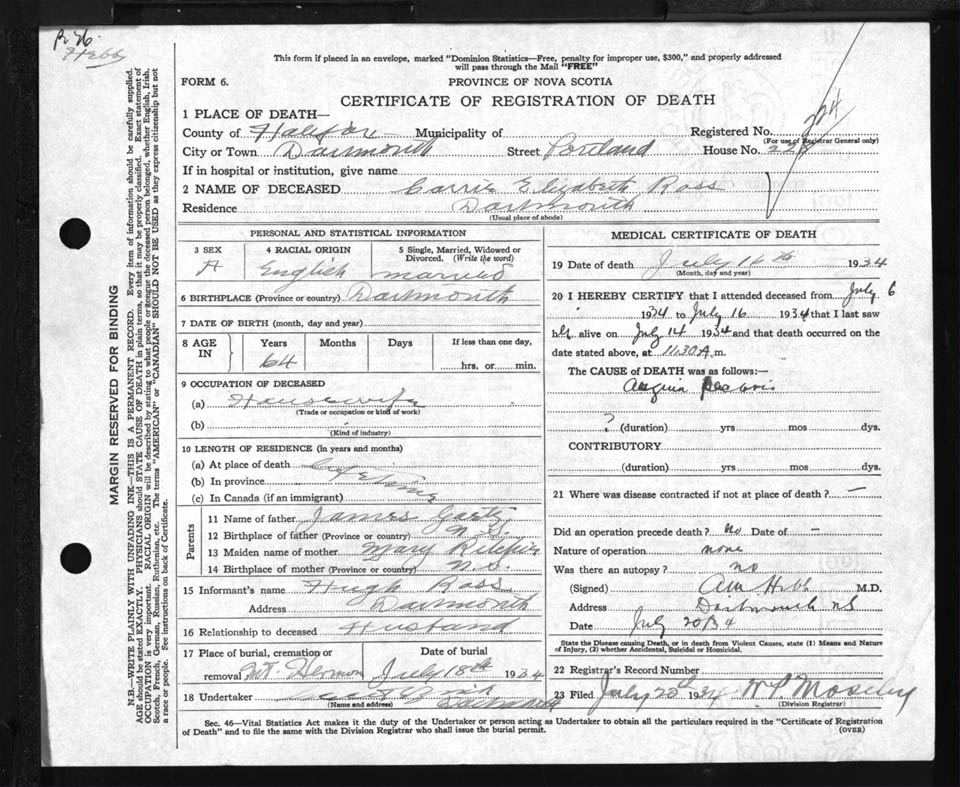 P. 26.
Hebb
This form if placed in an envelope, marked "Dominion Statistics—Free, penalty for improper use, $300," and properly addressed
will pass through the Mail "FREE"
FORM 6.
PROVINCE OF NOVA SCOTIA
CERTIFICATE OF REGISTRATION OF DEATH
1 PLACE OF DEATH—
County of Halifax Municipality of Registered No. 224
(For use of Registrar General only)
City or Town Dartmouth Street Portland House No. 224
If in hospital or institution, give name
2 NAME OF DECEASED Carrie Elizabeth Ross
Residence Dartmouth
(Usual place of abode)
PERSONAL AND STATISTICAL INFORMATION
3 SEX 4 RACIAL ORIGIN 5 Single, Married, Widowed or
Divorced. (Write the word)
English married
6 BIRTHPLACE (Province or country) Dartmouth
7 DATE OF BIRTH (month, day and year)
8 AGE IN Years Months Days If less than one day,
64 hrs. or min.
9 OCCUPATION OF DECEASED
(a) Housewife
(Trade or occupation or kind of work)
(b)
(Kind of industry)
10 LENGTH OF RESIDENCE (in years and months)
(a) At place of death
(b) In province Life time
(c) In Canada (if an immigrant)
Parents
11 Name of father James
12 Birthplace of father (Province or country) N.S.
13 Maiden name of mother Mary Ritchie
14 Birthplace of mother (Province or country) N.S.
15 Informant's name Hugh Ross
Address Dartmouth
16 Relationship to deceased Husband
17 Place of burial, cremation or removal Date of burial
Mt Hermon July 18th 1934
18 Undertaker
(Name and address) Dartmouth
MEDICAL CERTIFICATE OF DEATH
19 Date of death July 16th 1934
(Month, day and year)
20 I HEREBY CERTIFY that I attended deceased from July 6
1934 to July 16 1934 that I last saw
her alive on July 14 1934 and that death occurred on
date stated above, at 11.30 A.m.
The CAUSE of DEATH was as follows:—
Angina Pectoris
? (duration) yrs mos dys.
CONTRIBUTORY
(duration) yrs mos dys.
21 Where was disease contracted if not at place of death? —
Did an operation precede death? No Date of —
Nature of operation none
Was there an autopsy? no
(Signed) Hebb M.D.
Address Dartmouth NS
Date July 20/34
State the Disease causing Death, or in death from Violent Causes, state (1) Means and Nature
of Injury, (2) whether Accidental, Suicidal or Homicidal.
22 Registrar's Record Number
23 Filed July 20th 1934 W Moseley
(Division Registrar)
Sec. 46—Vital Statistics Act makes it the duty of the Undertaker or person acting as Undertaker to obtain all the particulars required in the "Certificate of Registration
of Death" and to file the same with the Division Registrar who shall issue the burial permit.
(OVER)
MARGIN RESERVED FOR BINDING
N.B.—WRITE PLAINLY WITH UNFADING INK—THIS IS A PERMANENT RECORD. Every item of information should be carefully supplied.
AGE should be stated EXACTLY. PHYSICIANS should STATE CAUSE OF DEATH in plain terms, so that it may be properly classified. Exact statement of
OCCUPATION is very important. RACIAL ORIGIN will be described by stating to what people or tongue the deceased person belonged, whether English, Irish,
Scotch, French, German, Russian, Ruthenian, etc. The terms "AMERICAN" or "CANADIAN" SHOULD NOT BE USED as they express citizenship but not
a race or people. See instructions on back of Certificate.